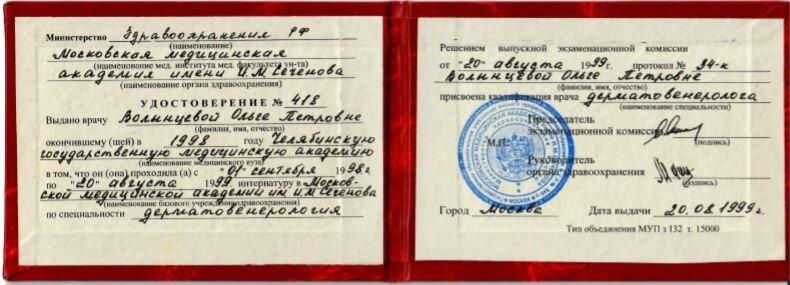 Министерство Здравоохранения РФ
(наименование)
Московская медицинская
(наименование мед. института мед. факультета ун-та)
академия имени И.М Сеченова
(наименование органа здравоохранения)
УДОСТОВЕРЕНИЕ № 418
Выдано врачу Волынцевой Ольге Петровне
(фамилия, имя, отчество)
окончившему (шей) в 1998 году Челябинскую
государственную медицинскую академию
(наименование медицинского вуза)
в том, что он (она) проходил(а) с "01" сентября 1998г
по "20" августа 1999 интернатуру в Москов-
ской медицинской академии им. И.М Сеченова
(наименование базового учреждения здравоохранения)
по специальности дерматовенерология
Решением выпускной экзаменационной комиссии
от "20" августа 1999г. протокол № 34-к
Волынцевой Ольге Петровне
(фамилия, имя, отчество)
присвоена квалификация врача дерматовенеролога
(наименование специальности)
Председатель
экзаменационной комиссии
(подпись)
М.П.
Руководитель
органа здравоохранения
(подпись)
Город Москва Дата выдачи 20.08.1999г.
Тип объединения МУП з 132 т. 15000